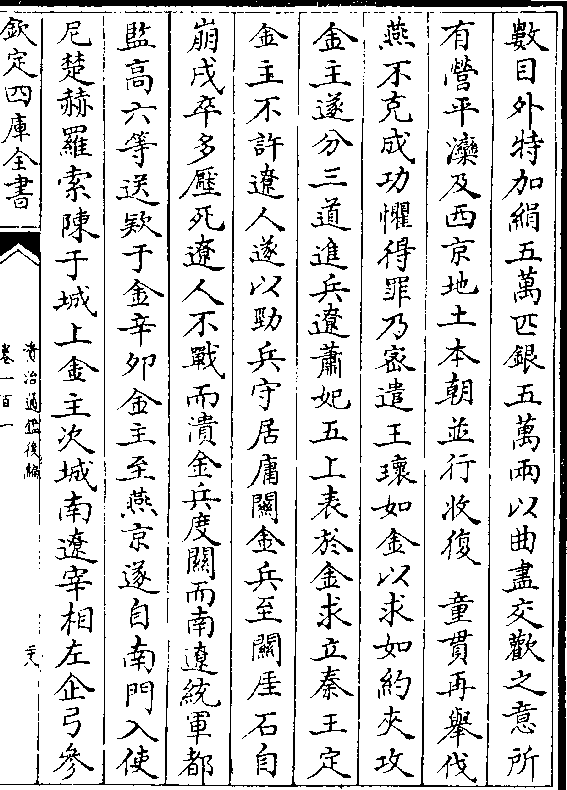 數目外特加絹五萬匹銀五萬兩以曲盡交歡之意所
有營平灤及西京地土本朝並行收復　童貫再舉伐
燕不克成功懼得罪乃密遣王瓌如金以求如約夾攻
金主遂分三道進兵遼蕭妃五上表於金求立秦王定
金主不許遼人遂以勁兵守居庸關金兵至關厓石自
崩戌卒多壓死遼人不戰而潰金兵度關而南遼統軍都
監高六等送欵于金辛卯金主至燕京遂自南門入使
尼楚赫羅索陳于城上金主次城南遼宰相左企弓參
欽定四庫全書
資治通鑑後編
卷一百一